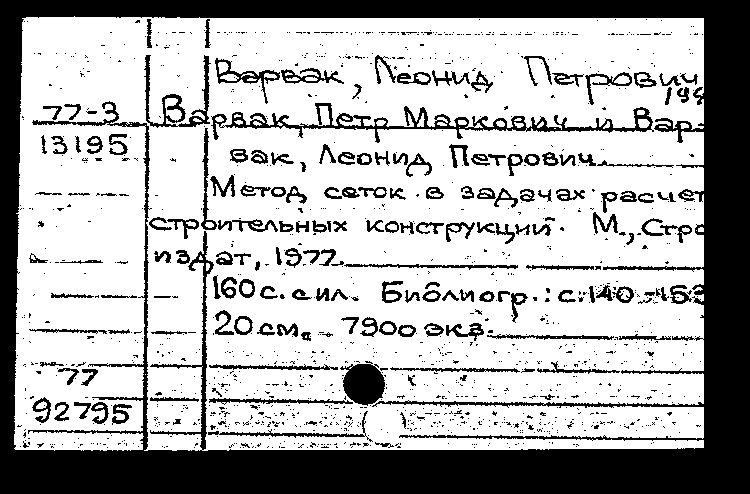 Варвак, Леонид Петрович
77-3 Варвак, Петр Маркович и Вар-
13195 вак, Леонид Петрович.
Метод сеток в задачах расчет
строительных конструкций. М., Стро
издат, 1977.
160 с. с ил. Библиогр.: с. 140-153
20 см. 7900 экз.
77
92795